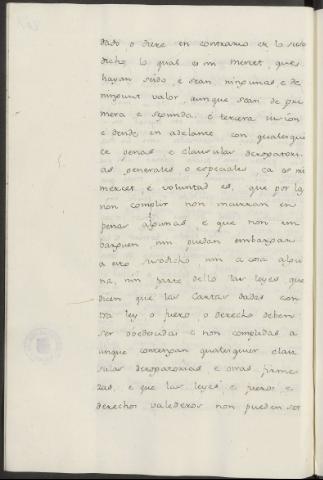 dado, o diere en contrario en lo suso
dicho lo qual es mi merced, ques
hayan seido, e sean ningunas e de
ningunt valor, aunque sean de pri
mera e segunda, e tercera jusion
e dende en adelante con qualesqui
er penas e clausulas derogatori
as generales o especiales, ca es mi
merced e voluntad es, que por la
non complir non incurran en
penas algunas, e que non em
barguen nin puedan embargar
a esto susodicho nin a cosa algu
na, nin parte dello las leyes que
dicen que las cartas dadas con
tra ley o fuero, o derecho deben
ser obedecidas e non complidas a
unque contengan qualesquier clau
sulas derogatorias e otras firme
zas, e que las leyes e fueros e
derechos valederos non pueden ser